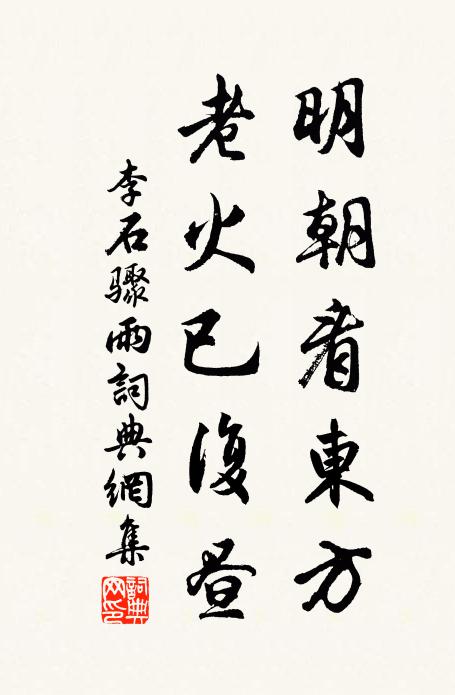 明朝看東方
老火已復晝
李石驟雨詞典網集
詞典網印